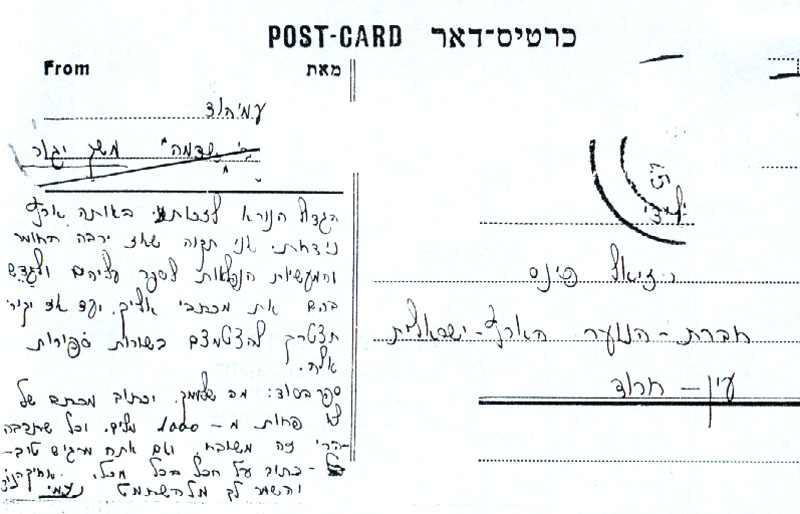 POST-CARD כרטיס-דאר
From מאת
עמיהוד
משק יגור
הגדול הנורא לזכותי באותה ארץ
נידחת. אני תקוה שאז ירבה החומר
והמעשיות הנפלאות לספר עליהם ולגדש
בהם את מכתבי אליך. ועד אז יקירי
תצטרך להצטמצם בשורות ספורות
אלה.
ספר בסוד: מה שלומך. יכתוב מכתב של
לא פחות מ- 1000 מלים. וכל שתרבה
הרי זה משובח. ואם אתה מרגיש טוב-
כתוב על הכל בכל מכל.
והשמר לך מלהשתמט נעמי
45
עוזיאל פינס
חברת-הנוער הארץ-ישראלית
עין-חרוד